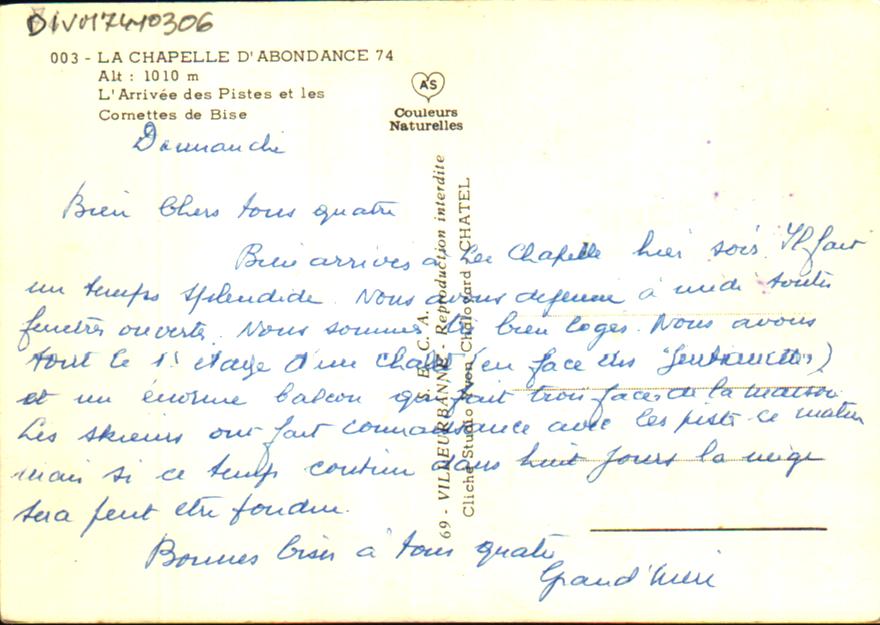 DIVM7410306
003 - LA CHAPELLE D'ABONDANCE 74
Alt : 1010 m
L'Arrivée des Pistes et les
Cornettes de Bise
AS
Couleurs
Naturelles
Dimanche
Bien Chers tous quatre
Bien arrivés à La Chapelle hier soir. Il fait
un temps splendide. Nous avons dejeuné à midi toutes
fenêtres ouvertes. Nous sommes très bien logés. Nous avons
tout le 1er etage d'un chalet (en face des Gentianettes)
et un énorme balcon qui fait trois faces de la maison
Les skieurs ont fait connaissance avec les pistes ce matin
mais si ce temps continue dans huit jours la neige
sera peut etre fondue.
Bonnes bises à tous quatre
Grand'Mère
S. E. C. A.
69 - VILLEURBANNE - Reproduction interdite
Cliché Studio Yvon Chalovard CHATEL